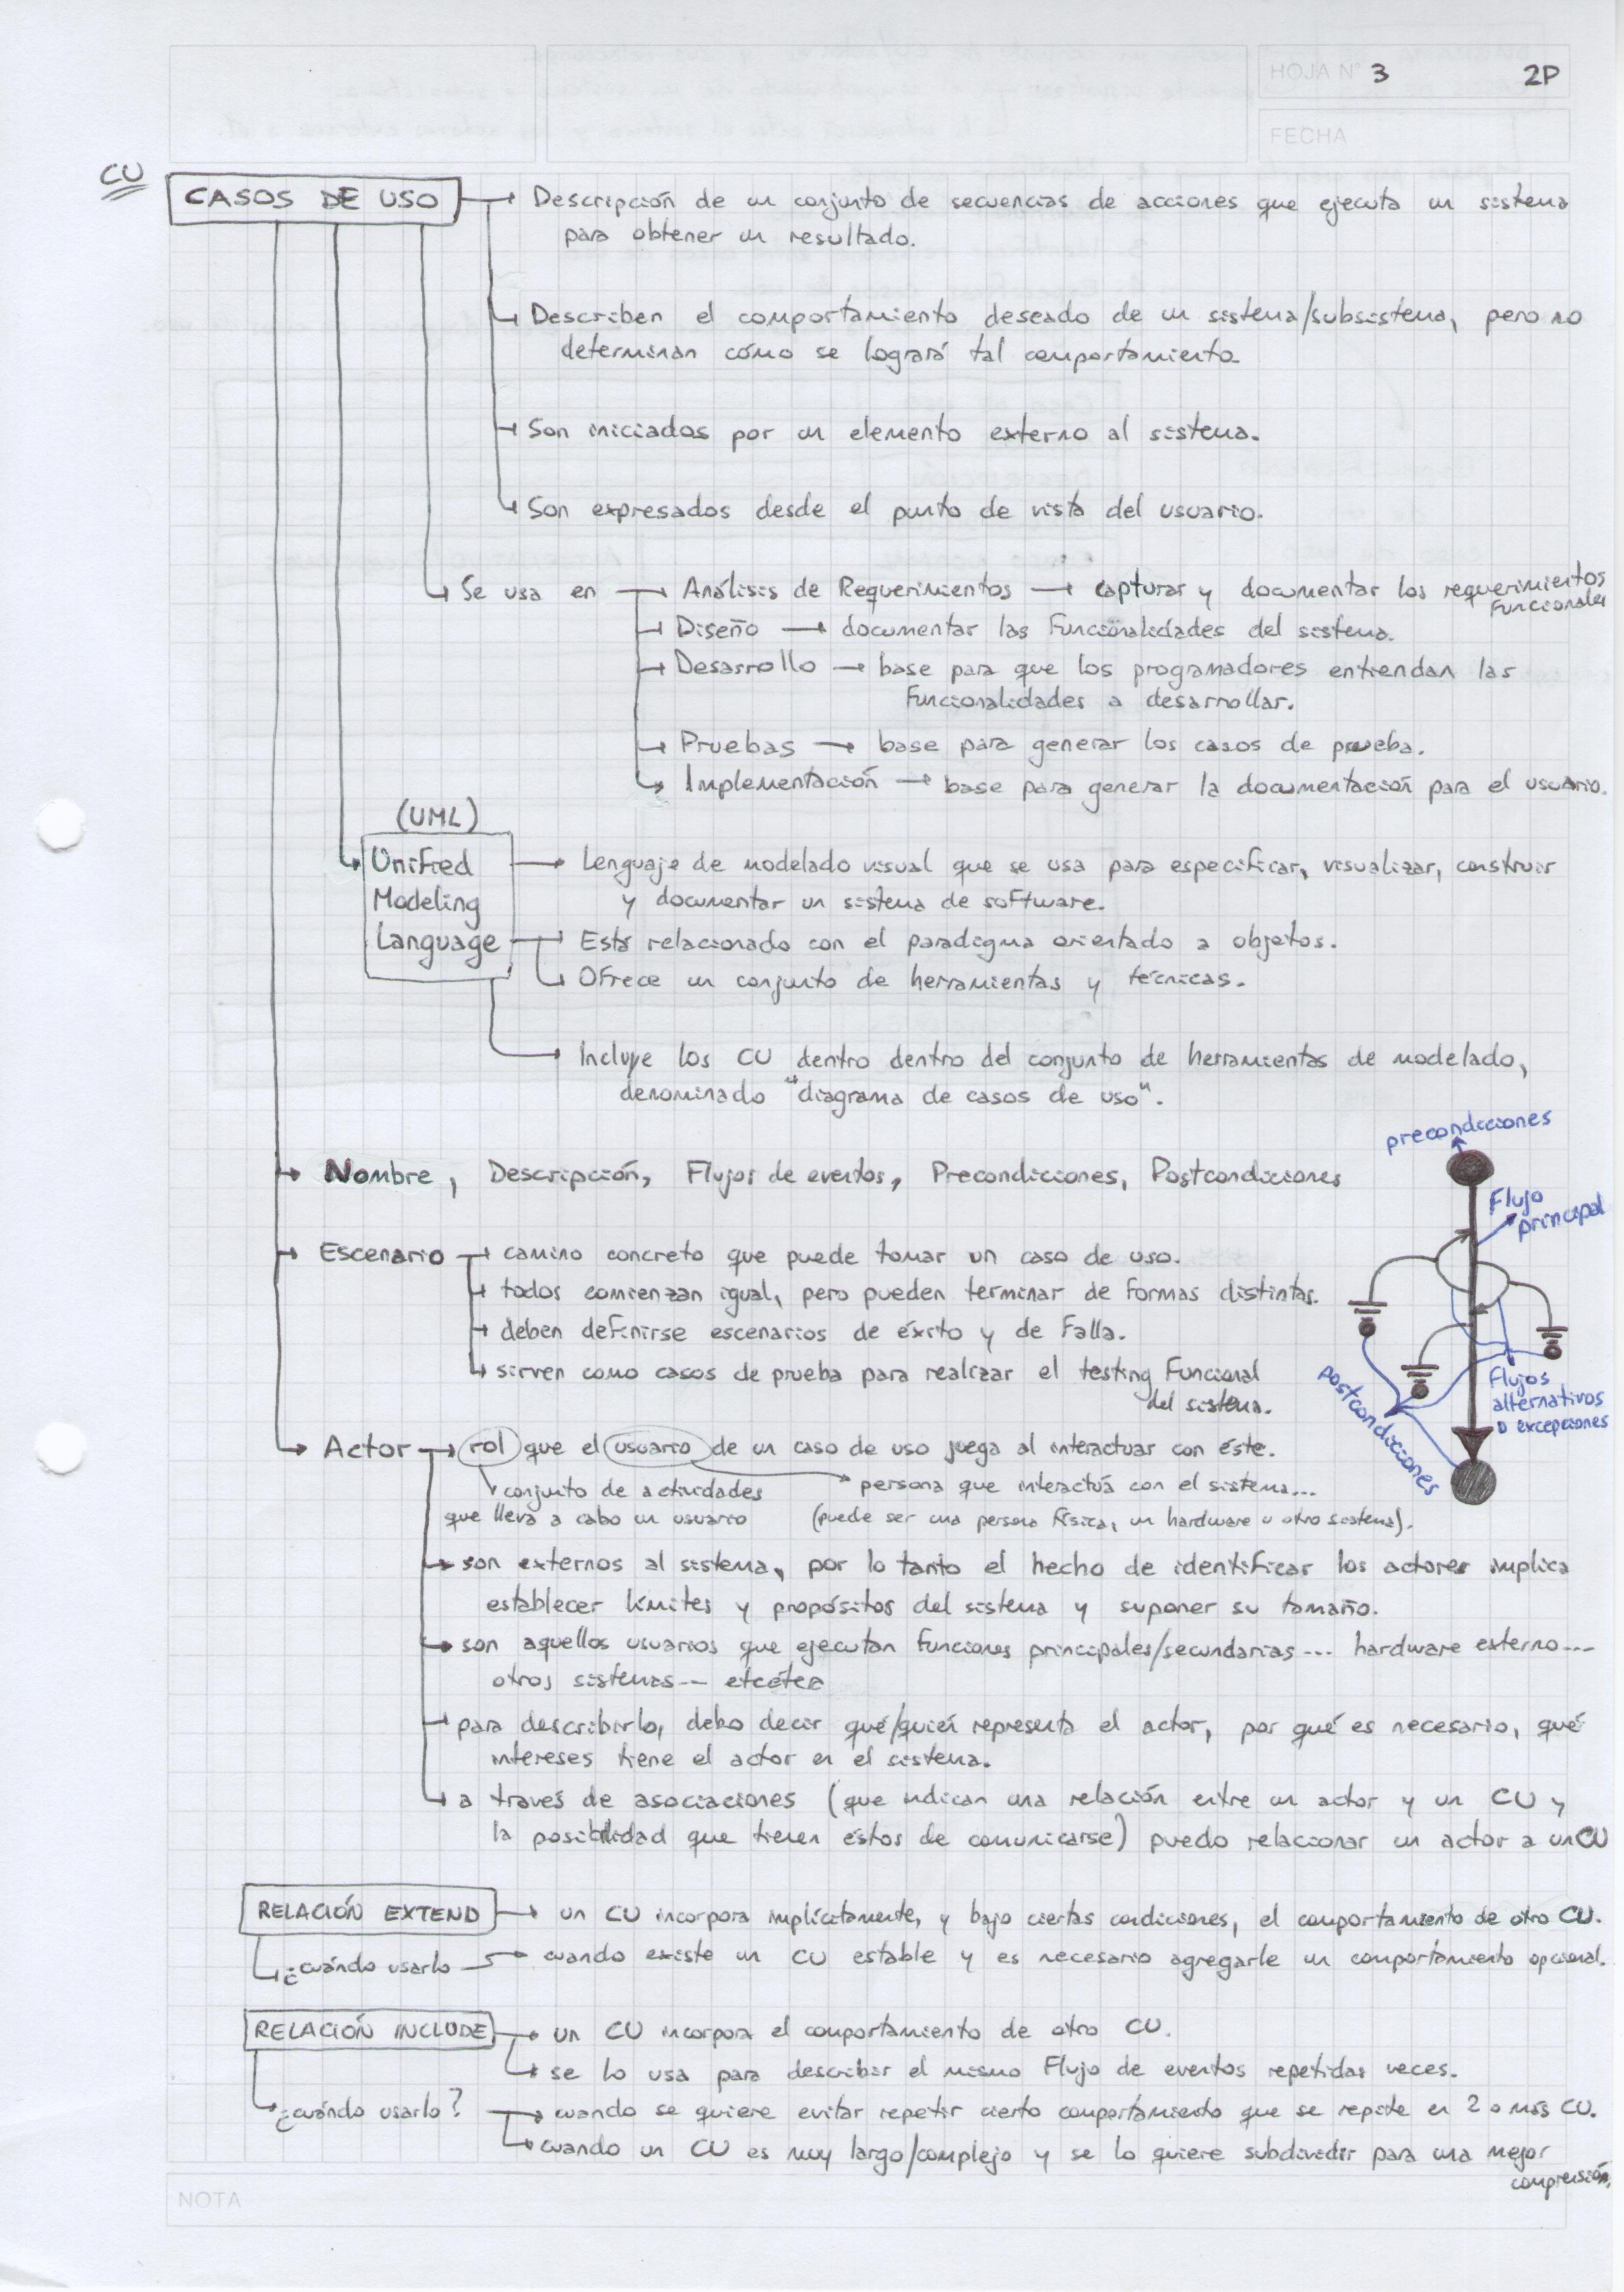 HOJA N° 3 2P
FECHA
CU
CASOS DE USO → Descripción de un conjunto de secuencias de acciones que ejecuta un sistema
para obtener un resultado.
Describen el comportamiento deseado de un sistema/subsistema, pero no
determinan cómo se logrará tal comportamiento.
Son iniciados por un elemento externo al sistema.
Son expresados desde el punto de vista del usuario.
Se usa en → Análisis de Requerimientos → capturar y documentar los requerimientos
funcionales
Diseño → documentar las funcionalidades del sistema.
Desarrollo → base para que los programadores entiendan las
funcionalidades a desarrollar.
Pruebas → base para generar los casos de prueba.
Implementación → base para generar la documentación para el usuario.
(UML)
Unified → Lenguaje de modelado visual que se usa para especificar, visualizar, construir
Modeling y documentar un sistema de software.
Language → Está relacionado con el paradigma orientado a objetos.
Ofrece un conjunto de herramientas y técnicas.
Incluye los CU dentro dentro del conjunto de herramientas de modelado,
denominado "diagrama de casos de uso".
precondiciones
Nombre, Descripción, Flujos de eventos, Precondiciones, Postcondiciones
Flujo
principal
Escenario → camino concreto que puede tomar un caso de uso.
todos comienzan igual, pero pueden terminar de formas distintas.
deben definirse escenarios de éxito y de falla.
sirven como casos de prueba para realizar el testing funcional
del sistema.
Flujos
alternativos
o excepciones
postcondiciones
Actor → rol que el usuario de un caso de uso juega al interactuar con éste.
conjunto de actividades → persona que interactúa con el sistema...
que lleva a cabo un usuario (puede ser una persona física, un hardware u otro sistema).
son externos al sistema, por lo tanto el hecho de identificar los actores implica
establecer límites y propósitos del sistema y suponer su tamaño.
son aquellos usuarios que ejecutan funciones principales/secundarias... hardware externo...
otros sistemas... etcétera
para describirlo, debo decir qué/quién representa el actor, por qué es necesario, qué
intereses tiene el actor en el sistema.
a través de asociaciones (que indican una relación entre un actor y un CU y
la posibilidad que tienen éstos de comunicarse) puedo relacionar un actor a un CU
RELACIÓN EXTEND → un CU incorpora implícitamente, y bajo ciertas condiciones, el comportamiento de otro CU.
¿cuándo usarlo → cuando existe un CU estable y es necesario agregarle un comportamiento opcional.
RELACIÓN INCLUDE → un CU incorpora el comportamiento de otro CU.
se lo usa para describir el mismo flujo de eventos repetidas veces.
¿cuándo usarlo? → cuando se quiere evitar repetir cierto comportamiento que se repite en 2 o más CU.
cuando un CU es muy largo/complejo y se lo quiere subdividir para una mejor
comprensión.
NOTA